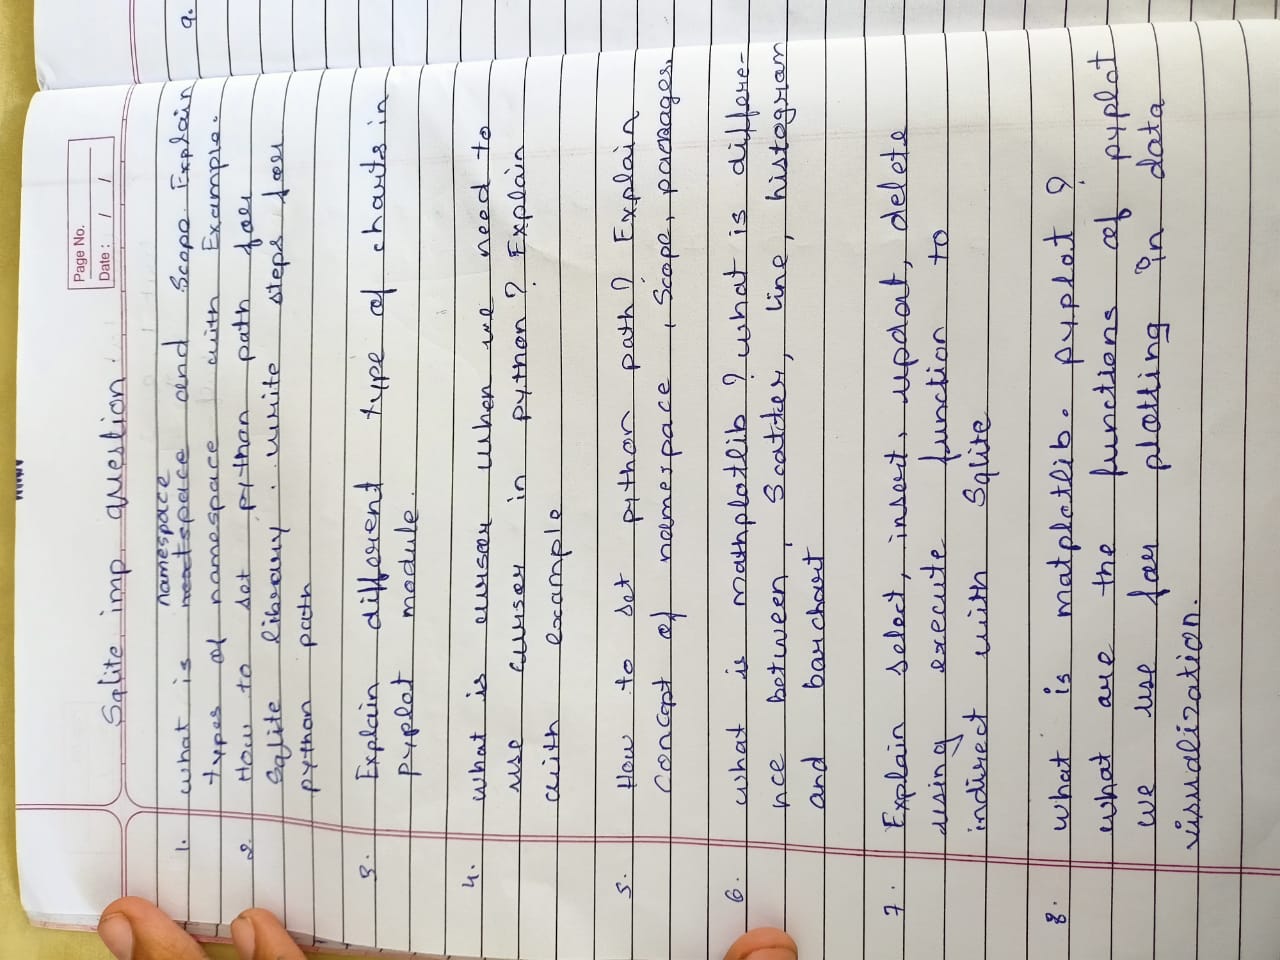 Page No.
Date: / /
Sqlite imp question.
namespace
1. what is space and Scope. Explain
types of namespace with Example.
2. How to set python path for
Sqlite library. write steps for
python path
3. Explain different type of charts in
pyplot module.
4. what is cursor when we need to
use cursor in python? Explain
with example
5. How to set python path? Explain
concept of namespace, Scope, packages.
6. what is mathplotlib? what is differe-
nce between, Scatter, line, histogram
and barchart
7. Explain select, insert, updat, delete
using execute function to
indirect with Sqlite
8. what is matplotlib. pyplot?
what are the functions of pyplot
we use for plotting in data
visualization.
9.